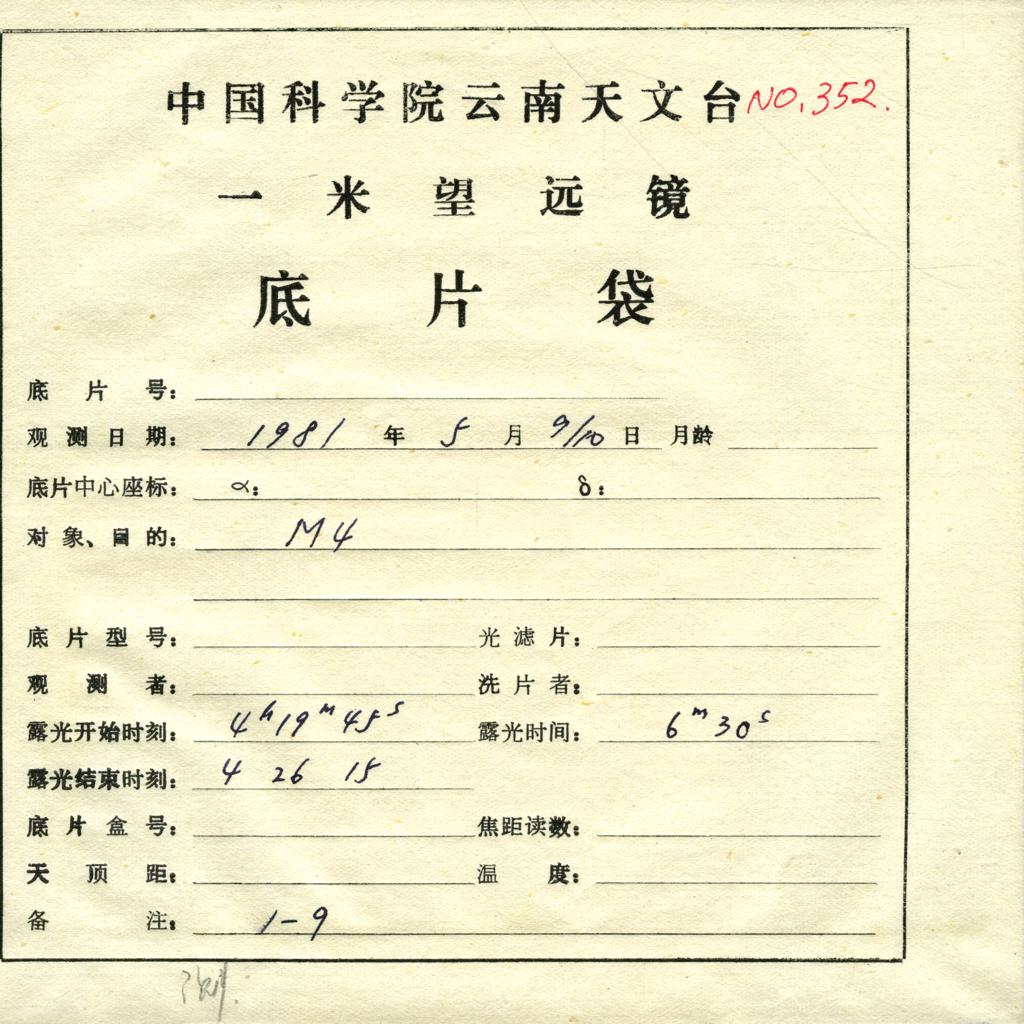 中国科学院云南天文台 NO.352.
一米望远镜
底片袋
底片号:
观测日期: 1981 年 5 月 9/10 日 月龄
底片中心座标: α: δ:
对象、目的: M4
底片型号: 光滤片:
观测者: 洗片者:
露光开始时刻: 4h19m45s 露光时间: 6m30s
露光结束时刻: 4 26 15
底片盒号: 焦距读数:
天顶距: 温度:
备注: 1-9